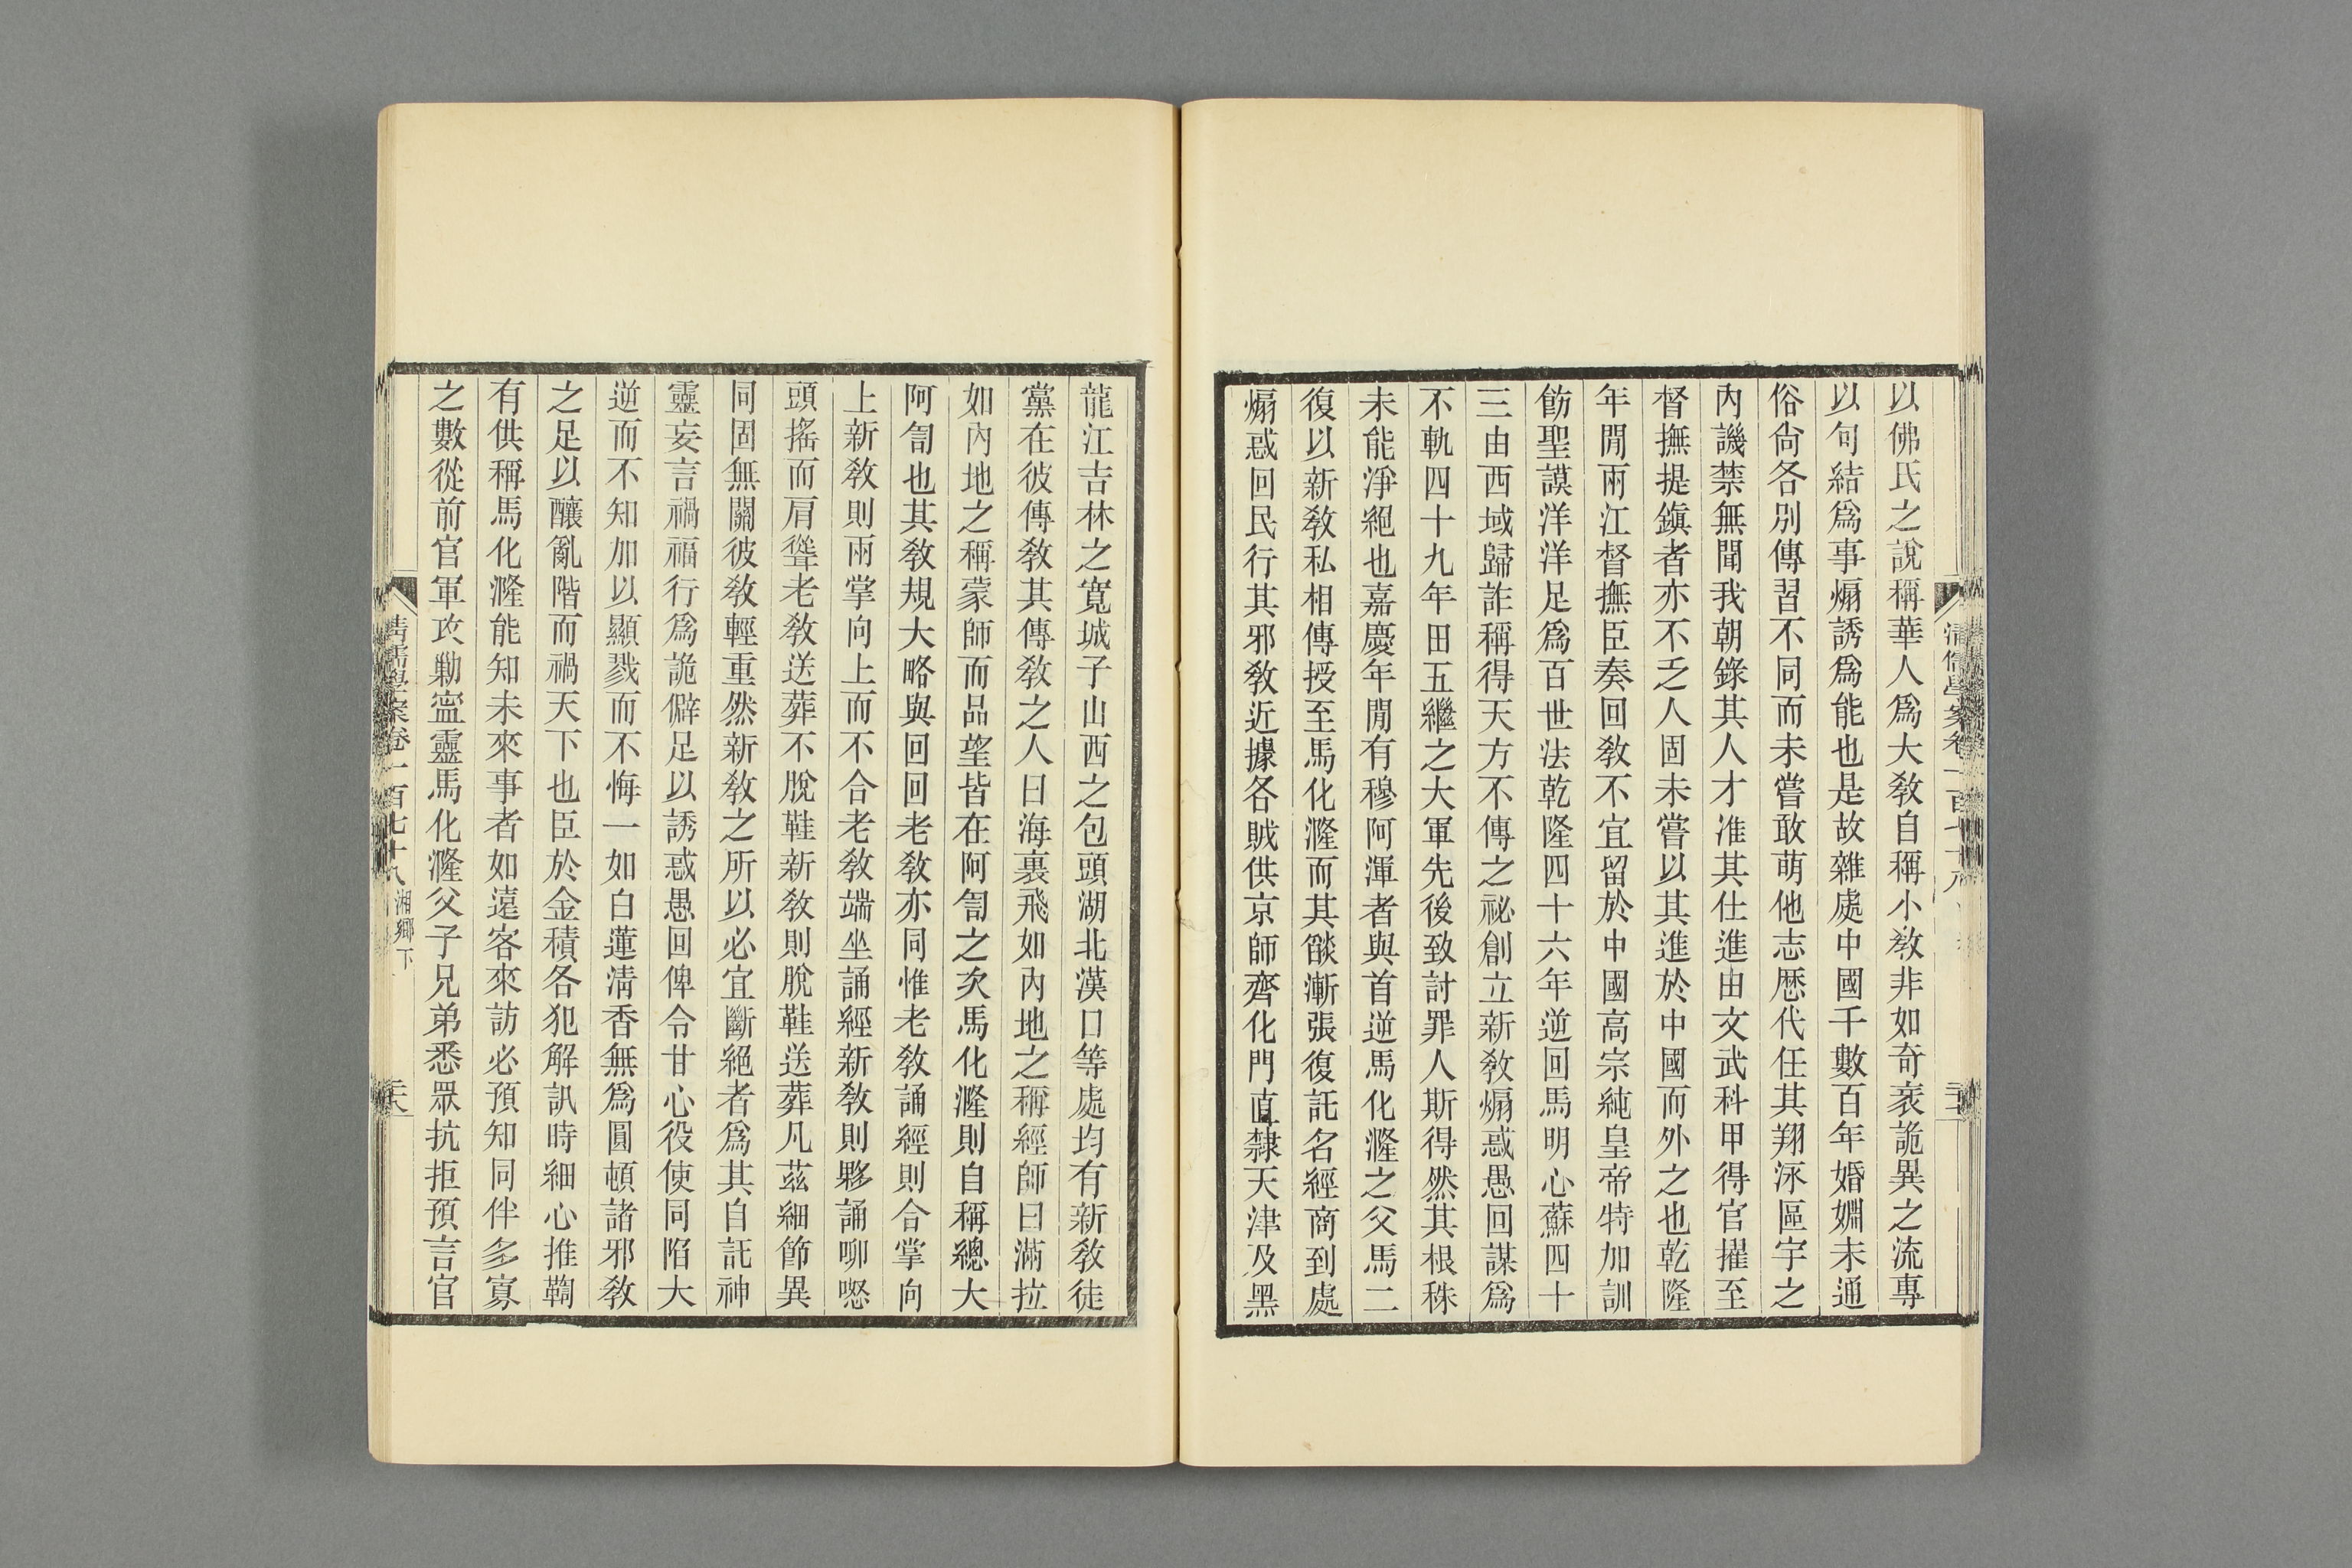 以佛氏之說稱華人爲大敎自稱小敎非如奇衺詭異之流專
以句結爲事煽誘爲能也是故雜處中國千數百年婚婣未通
俗尙各別傳習不同而未嘗敢萌他志厯代任其翔泳區宇之
內譏禁無聞我朝錄其人才准其仕進由文武科甲得官擢至
督撫提鎭者亦不乏人固未嘗以其進於中國而外之也乾隆
年閒兩江督撫臣奏回敎不宜留於中國高宗純皇帝特加訓
飭聖謨洋洋足爲百世法乾隆四十六年逆回馬明心蘇四十
三由西域歸詐稱得天方不傳之祕創立新敎煽惑愚回謀爲
不軌四十九年田五繼之大軍先後致討罪人斯得然其根株
未能淨絕也嘉慶年閒有穆阿渾者與首逆馬化漋之父馬二
復以新敎私相傳授至馬化漋而其燄漸張復託名經商到處
煽惑回民行其邪敎近據各賊供京師齊化門直隸天津及黑
龍江吉林之寬城子山西之包頭湖北漢口等處均有新敎徒
黨在彼傳敎其傳敎之人曰海裏飛如內地之稱經師曰滿拉
如內地之稱蒙師而品望皆在阿訇之次馬化漋則自稱總大
阿訇也其敎規大略與回回老敎亦同惟老敎誦經則合掌向
上新敎則兩掌向上而不合老敎端坐誦經新敎則夥誦唧嘐
頭搖而肩聳老敎送葬不脫鞋新敎則脫鞋送葬凡茲細節異
同固無關彼敎輕重然新敎之所以必宜斷絕者爲其自託神
靈妄言禍福行爲詭僻足以誘惑愚回俾令甘心役使同陷大
逆而不知加以顯戮而不悔一如白蓮淸香無爲圓頓諸邪敎
之足以釀亂階而禍天下也臣於金積各犯解訊時細心推鞫
有供稱馬化漋能知未來事者如遠客來訪必預知同伴多寡
之數從前官軍攻勦寍靈馬化漋父子兄弟悉眾抗拒預言官
淸儒學案卷一百七十八 湘鄕下